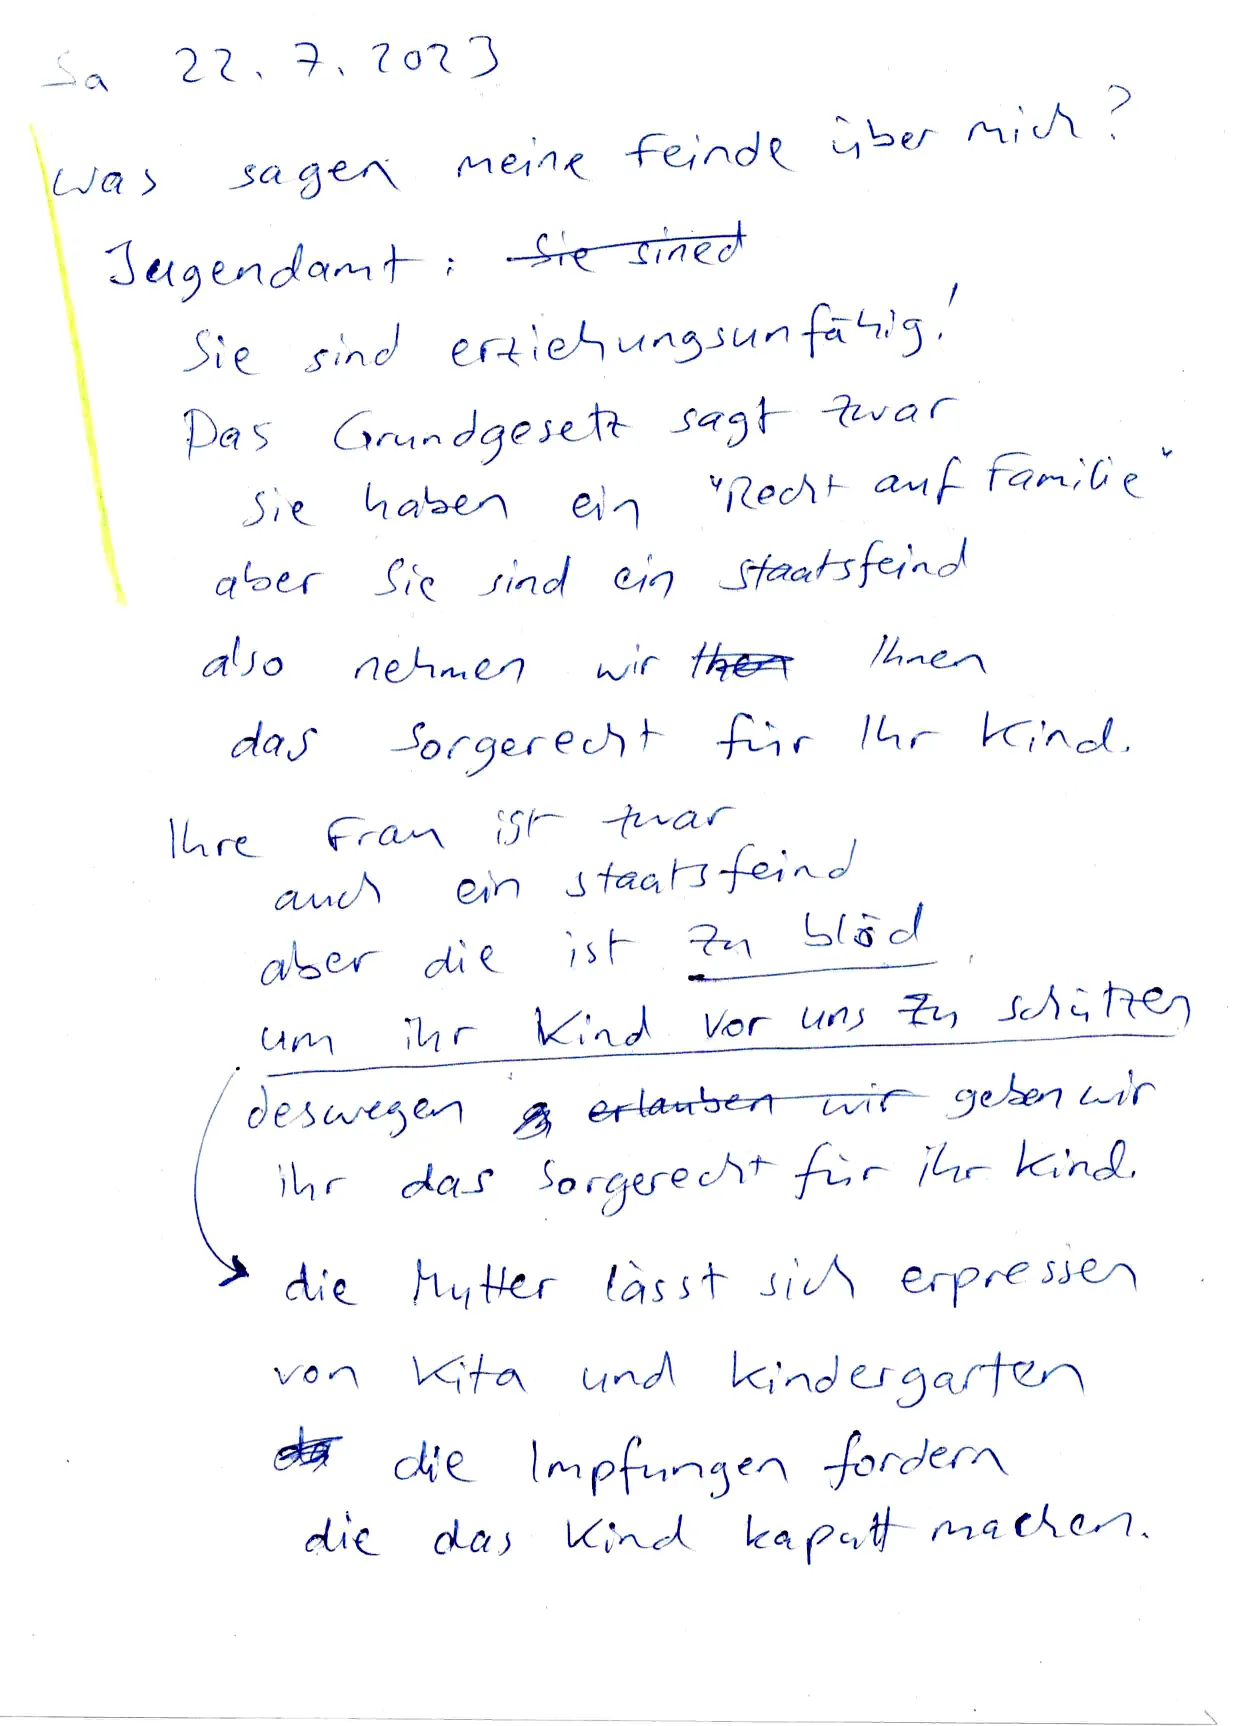 Sa 22.7.2023
was sagen meine Feinde über mich?
Jugendamt: Sie sined
Sie sind erziehungsunfähig!
Das Grundgesetz sagt zwar
Sie haben ein "Recht auf Familie"
aber Sie sind ein Staatsfeind
also nehmen wir Ihnen
das Sorgerecht für Ihr Kind.
Ihre Frau ist zwar
auch ein Staatsfeind
aber die ist zu blöd
um ihr Kind vor uns zu schützen
deswegen erlauben wir geben wir
ihr das Sorgerecht für ihr Kind.
die Mutter lässt sich erpressen
von Kita und Kindergarten
die Impfungen fordern
die das Kind kaputt machen.